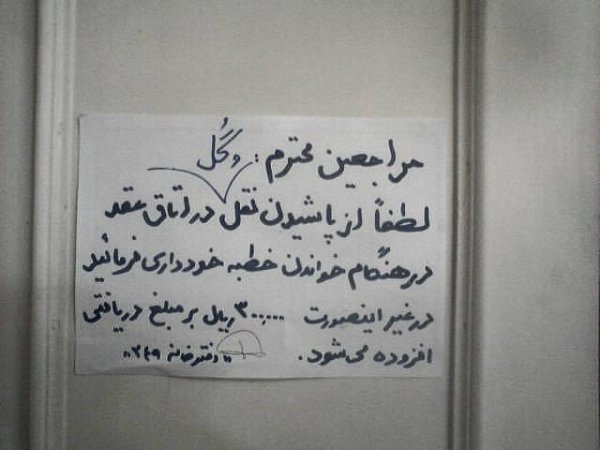 مراجعین محترم:
وگُل
لطفاً از پاشیدن نقل در اتاق عقد
در هنگام خواندن خطبه خودداری فرمائید
در غیر اینصورت ۳۰۰۰۰۰ ریال بر مبلغ دریافتی
افزوده می شود.
دفترخانه